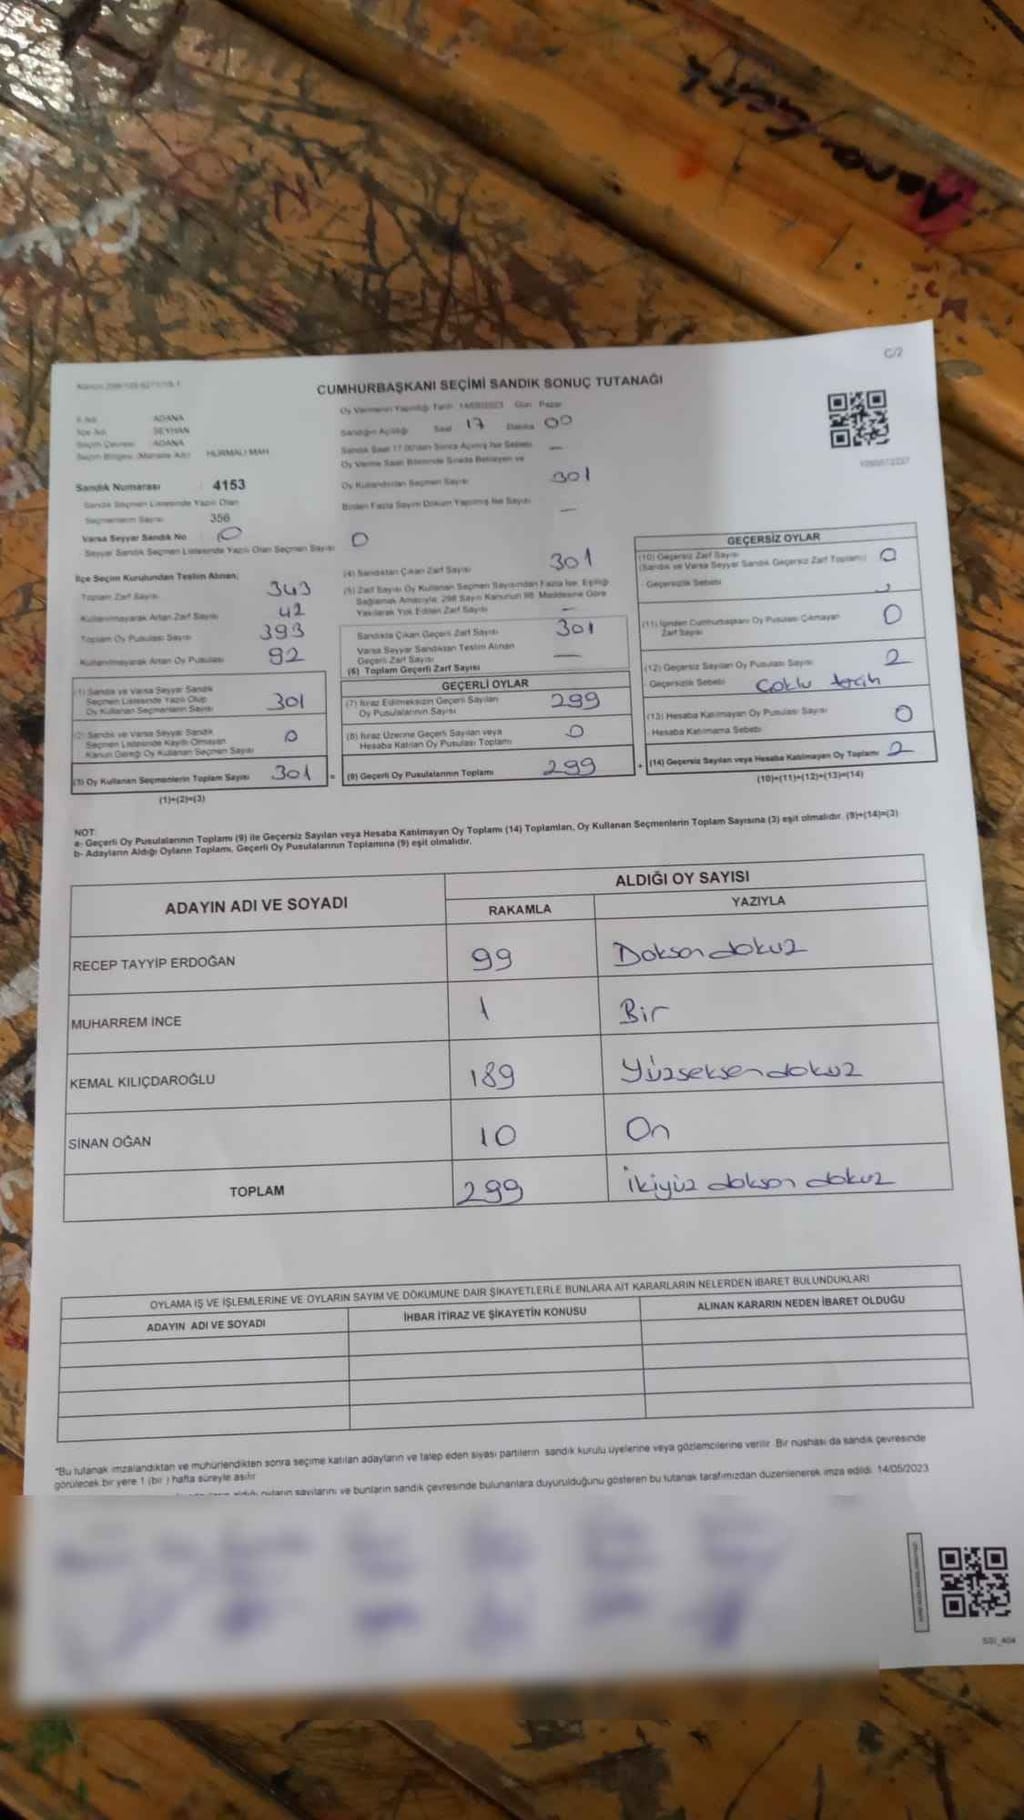 C/2
CUMHURBAŞKANI SEÇİMİ SANDIK SONUÇ TUTANAĞI
ADANA
SEYHAN
ADANA
HURMALI MAH
Oy Vermenin Yapıldığı Tarih 14/05/2023 Gün Pazar
Sandığın Açıldığı Saat 17 Dakika 00
Sandık Saat 17.00'den Sonra Açılmış İse Sebebi
—
Oy Verme Saati Bitiminde Sırada Bekleyen ve
Oy Kullandırılan Seçmen Sayısı 301
Birden Fazla Sayım Döküm Yapılmış İse Sayısı —
Sandık Numarası 4153
Sandık Seçmen Listesinde Yazılı Olan
Seçmenlerin Sayısı 356
Varsa Seyyar Sandık No 0
Seyyar Sandık Seçmen Listesinde Yazılı Olan Seçmen Sayısı 0
İlçe Seçim Kurulundan Teslim Alınan;
Toplam Zarf Sayısı 343
Kullanılmayarak Artan Zarf Sayısı 42
Toplam Oy Pusulası Sayısı 393
Kullanılmayarak Artan Oy Pusulası 92
(1) Sandık ve Varsa Seyyar Sandık
Seçmen Listesinde Yazılı Olup
Oy Kullanan Seçmenlerin Sayısı 301
(2) Sandık ve Varsa Seyyar Sandık
Seçmen Listesinde Kayıtlı Olmayan
Kanun Gereği Oy Kullanan Seçmen Sayısı 0
(3) Oy Kullanan Seçmenlerin Toplam Sayısı 301
(1)+(2)=(3)
(4) Sandıktan Çıkan Zarf Sayısı 301
(5) Zarf Sayısı Oy Kullanan Seçmen Sayısından Fazla İse, Eşitliği
Sağlamak Amacıyla, 298 Sayılı Kanunun 98. Maddesine Göre
Yakılarak Yok Edilen Zarf Sayısı —
Sandıkta Çıkan Geçerli Zarf Sayısı 301
Varsa Seyyar Sandıktan Teslim Alınan
Geçerli Zarf Sayısı —
(6) Toplam Geçerli Zarf Sayısı
GEÇERLİ OYLAR
(7) İtiraz Edilmeksizin Geçerli Sayılan
Oy Pusulalarının Sayısı 299
(8) İtiraz Üzerine Geçerli Sayılan veya
Hesaba Katılan Oy Pusulası Toplamı 0
= (9) Geçerli Oy Pusulalarının Toplamı 299
GEÇERSİZ OYLAR
(10) Geçersiz Zarf Sayısı
(Sandık ve Varsa Seyyar Sandık Geçersiz Zarf Toplamı) 0
Geçersizlik Sebebi
(11) İçinden Cumhurbaşkanı Oy Pusulası Çıkmayan
Zarf Sayısı 0
(12) Geçersiz Sayılan Oy Pusulası Sayısı 2
Geçersizlik Sebebi Çoklu tercih
(13) Hesaba Katılmayan Oy Pusulası Sayısı 0
Hesaba Katılmama Sebebi
+ (14) Geçersiz Sayılan veya Hesaba Katılmayan Oy Toplamı 2
(10)+(11)+(12)+(13)=(14)
NOT:
a- Geçerli Oy Pusulalarının Toplamı (9) ile Geçersiz Sayılan veya Hesaba Katılmayan Oy Toplamı (14) Toplamları, Oy Kullanan Seçmenlerin Toplam Sayısına (3) eşit olmalıdır. (9)+(14)=(3)
b- Adayların Aldığı Oyların Toplamı, Geçerli Oy Pusulalarının Toplamına (9) eşit olmalıdır.
ADAYIN ADI VE SOYADI ALDIĞI OY SAYISI
RAKAMLA YAZIYLA
RECEP TAYYİP ERDOĞAN 99 Doksan dokuz
MUHARREM İNCE 1 Bir
KEMAL KILIÇDAROĞLU 189 Yüzseksen dokuz
SİNAN OĞAN 10 On
TOPLAM 299 İkiyüz doksan dokuz
OYLAMA İŞ VE İŞLEMLERİNE VE OYLARIN SAYIM VE DÖKÜMÜNE DAİR ŞİKAYETLERLE BUNLARA AİT KARARLARIN NELERDEN İBARET BULUNDUKLARI
ADAYIN ADI VE SOYADI İHBAR İTİRAZ VE ŞİKAYETİN KONUSU ALINAN KARARIN NEDEN İBARET OLDUĞU
*Bu tutanak imzalandıktan ve mühürlendikten sonra seçime katılan adayların ve talep eden siyasi partilerin sandık kurulu üyelerine veya gözlemcilerine verilir. Bir nüshası da sandık çevresinde
görülecek bir yere 1 (bir ) hafta süreyle asılır.
aldığı oyların sayılarını ve bunların sandık çevresinde bulunanlara duyurulduğunu gösteren bu tutanak tarafımızdan düzenlenerek imza edildi. 14/05/2023